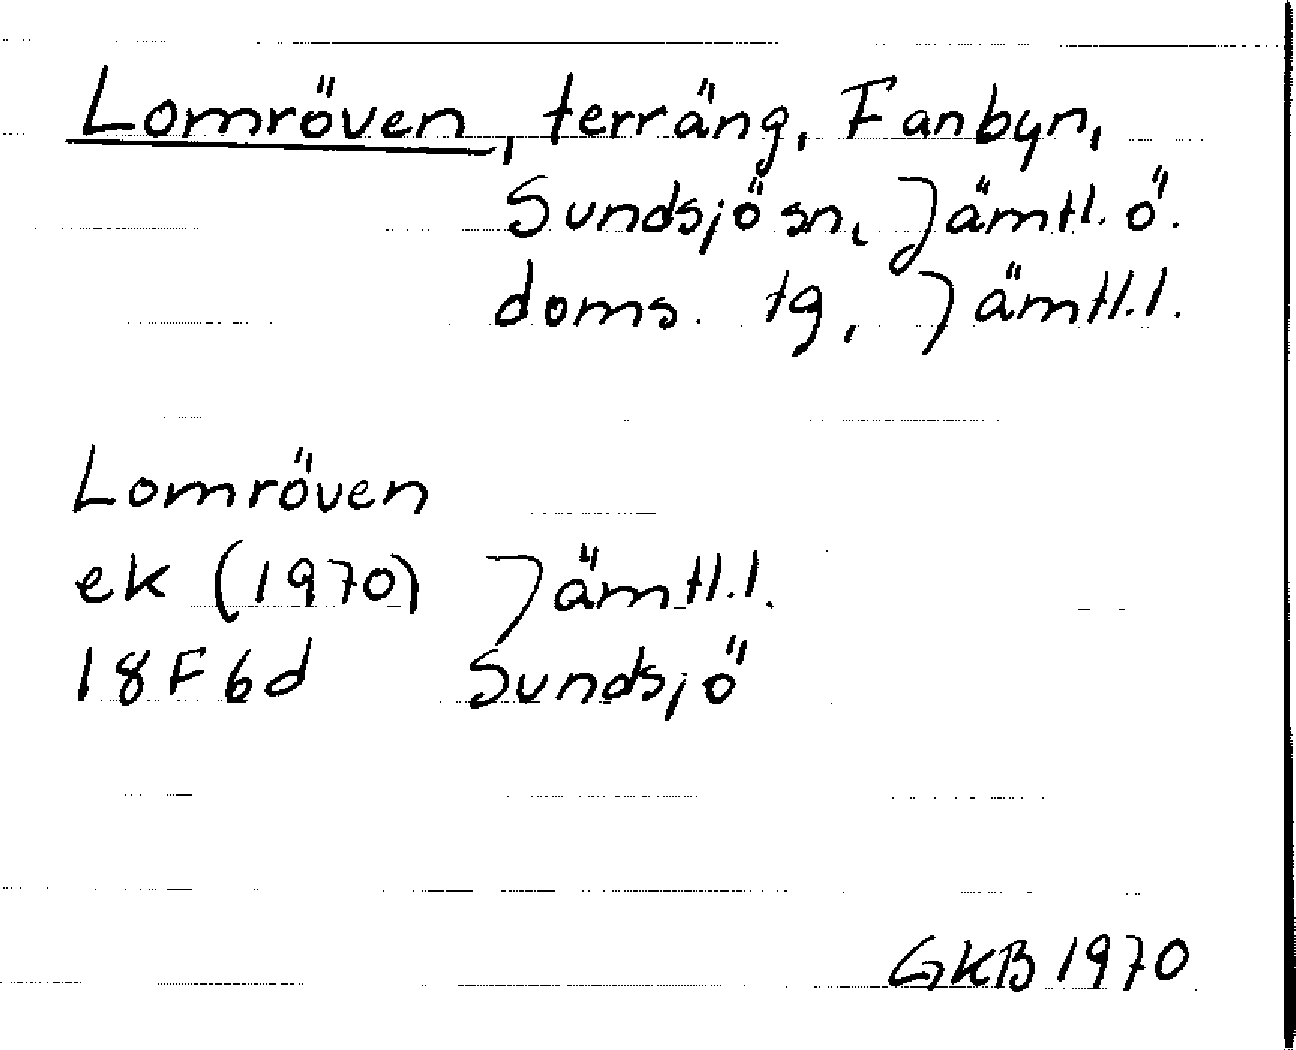 Lomröven, terräng, Fanbyn,
Sundsjö sn, Jämtl. ö.
doms. tg, Jämtl.l.
Lomröven
ek (1970) Jämtl.l.
18F6d Sundsjö
GKB 1970